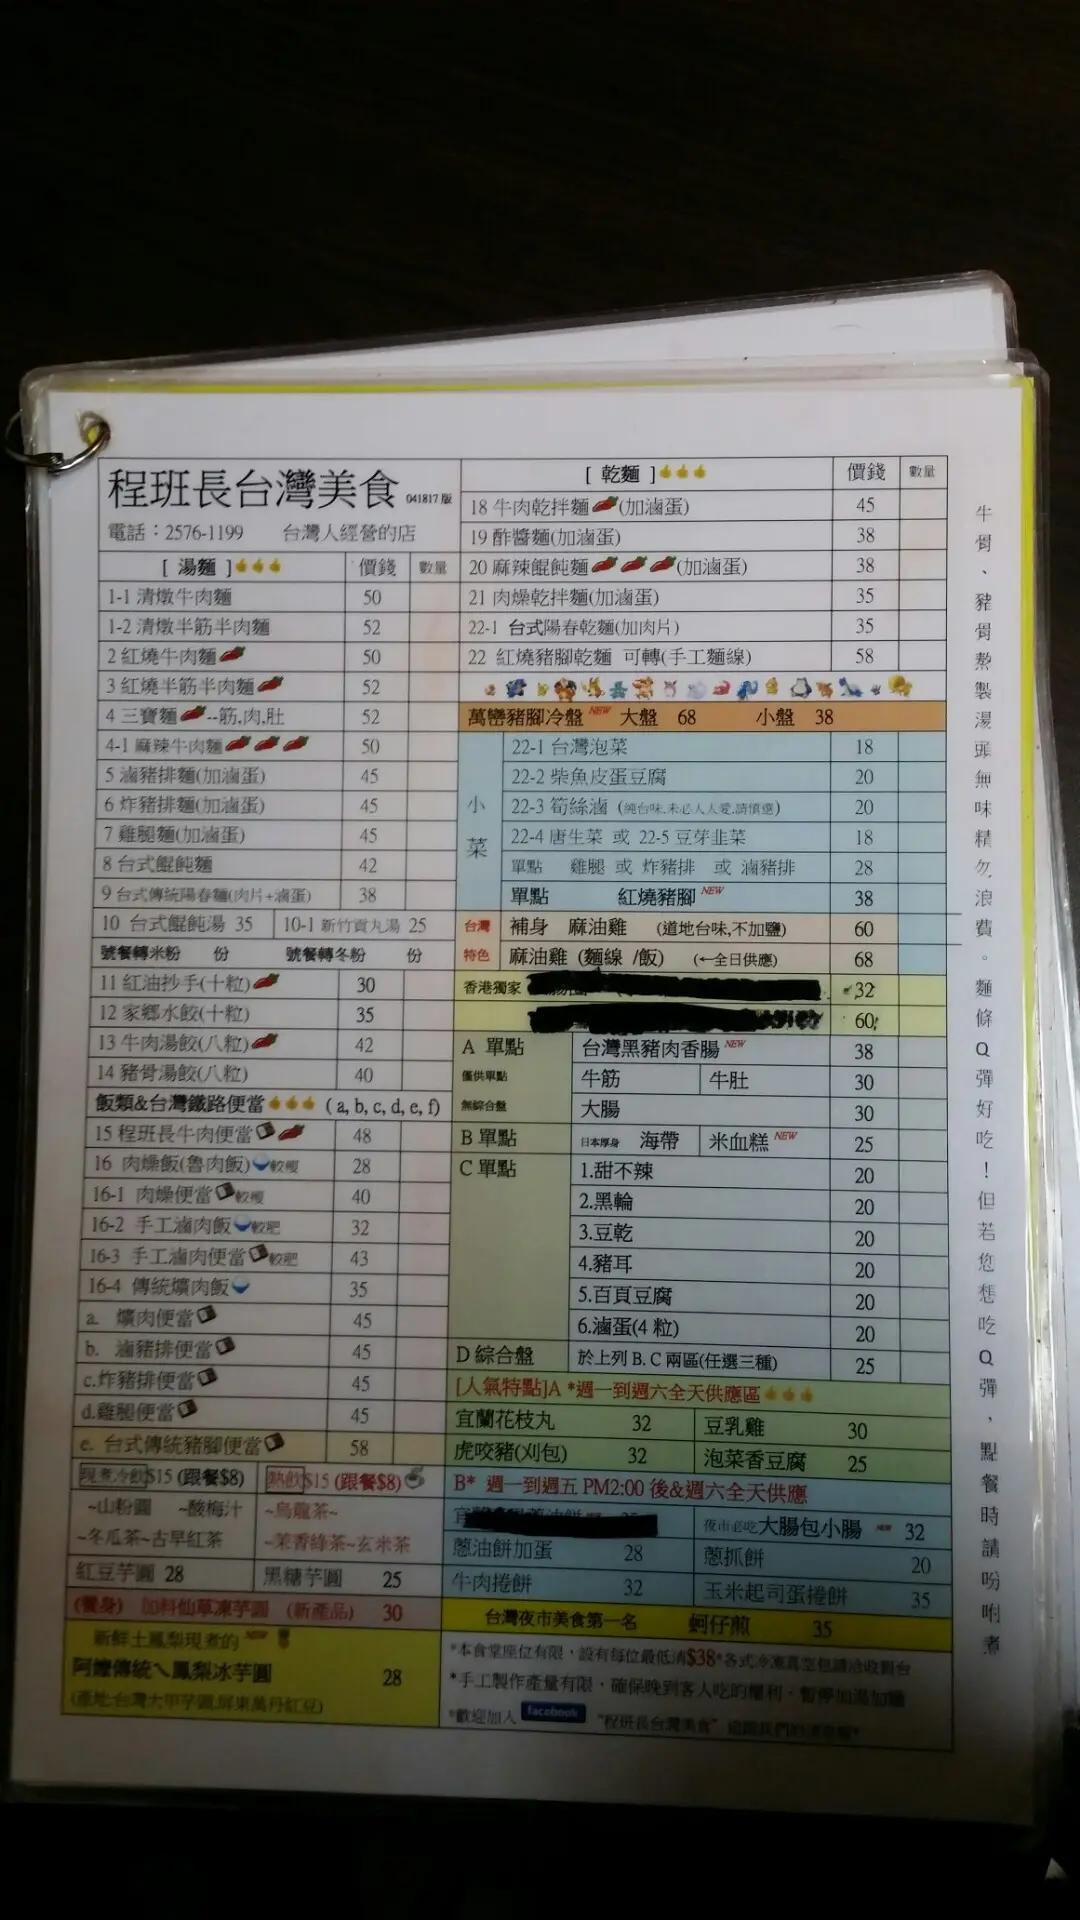 程班長台灣美食 041817 版
電話：2576-1199 台灣人經營的店
[ 湯麵 ] 價錢 數量
1-1 清燉牛肉麵 50
1-2 清燉半筋半肉麵 52
2 紅燒牛肉麵 50
3 紅燒半筋半肉麵 52
4 三寶麵--筋,肉,肚 52
4-1 麻辣牛肉麵 50
5 滷豬排麵(加滷蛋) 45
6 炸豬排麵(加滷蛋) 45
7 雞腿麵(加滷蛋) 45
8 台式餛飩麵 42
9 台式傳統陽春麵(肉片+滷蛋) 38
10 台式餛飩湯 35 10-1 新竹貢丸湯 25
號餐轉米粉 份 號餐轉冬粉 份
11 紅油抄手(十粒) 30
12 家鄉水餃(十粒) 35
13 牛肉湯餃(八粒) 42
14 豬骨湯餃(八粒) 40
飯類&台灣鐵路便當 ( a, b, c, d, e, f)
15 程班長牛肉便當 48
16 肉燥飯(魯肉飯) 較瘦 28
16-1 肉燥便當 較瘦 40
16-2 手工滷肉飯 較肥 32
16-3 手工滷肉便當 較肥 43
16-4 傳統爌肉飯 35
a. 爌肉便當 45
b. 滷豬排便當 45
c.炸豬排便當 45
d.雞腿便當 45
e. 台式傳統豬腳便當 58
現煮冷飲$15 (跟餐$8) 熱飲$15 (跟餐$8)
~山粉圓 ~酸梅汁 ~烏龍茶~
~冬瓜茶~古早紅茶 ~茉香綠茶~玄米茶
紅豆芋圓 28 黑糖芋圓 25
(養身) 加料仙草凍芋圓 (新產品) 30
新鮮土鳳梨現煮的 NEW
阿嬤傳統ㄟ鳳梨冰芋圓 28
(產地:台灣大甲芋圓,屏東萬丹紅豆)
[ 乾麵 ] 價錢 數量
18 牛肉乾拌麵 (加滷蛋) 45
19 酢醬麵(加滷蛋) 38
20 麻辣餛飩麵 (加滷蛋) 38
21 肉燥乾拌麵(加滷蛋) 35
22-1 台式陽春乾麵(加肉片) 35
22 紅燒豬腳乾麵 可轉(手工麵線) 58
萬巒豬腳冷盤 NEW 大盤 68 小盤 38
小菜
22-1 台灣泡菜 18
22-2 柴魚皮蛋豆腐 20
22-3 筍絲滷 (純台味,未必人人愛,請慎選) 20
22-4 唐生菜 或 22-5 豆芽韭菜 18
單點 雞腿 或 炸豬排 或 滷豬排 28
單點 紅燒豬腳 NEW 38
台灣 補身 麻油雞 (道地台味,不加鹽) 60
特色 麻油雞 (麵線 /飯) (←全日供應) 68
香港獨家 32
60
A 單點 台灣黑豬肉香腸 NEW 38
僅供單點 牛筋 牛肚 30
無綜合盤 大腸 30
B 單點 日本厚身 海帶 米血糕 NEW 25
C 單點 1.甜不辣 20
2.黑輪 20
3.豆乾 20
4.豬耳 20
5.百頁豆腐 20
6.滷蛋(4 粒) 20
D 綜合盤 於上列 B. C 兩區(任選三種) 25
[人氣特點]A *週一到週六全天供應區
宜蘭花枝丸 32 豆乳雞 30
虎咬豬(刈包) 32 泡菜香豆腐 25
B* 週一到週五 PM2:00 後&週六全天供應
夜市必吃大腸包小腸 NEW 32
蔥油餅加蛋 28 蔥抓餅 20
牛肉捲餅 32 玉米起司蛋捲餅 35
台灣夜市美食第一名 蚵仔煎 35
*本食堂座位有限，設有每位最低消$38*各式冷凍真空包請洽收銀台
*手工製作產量有限，確保晚到客人吃的權利，暫停加湯加麵
*歡迎加入 facebook "程班長台灣美食"
牛骨、豬骨熬製湯頭無味精勿浪費。麵條Q彈好吃！但若您想吃Q彈，點餐時請吩咐煮